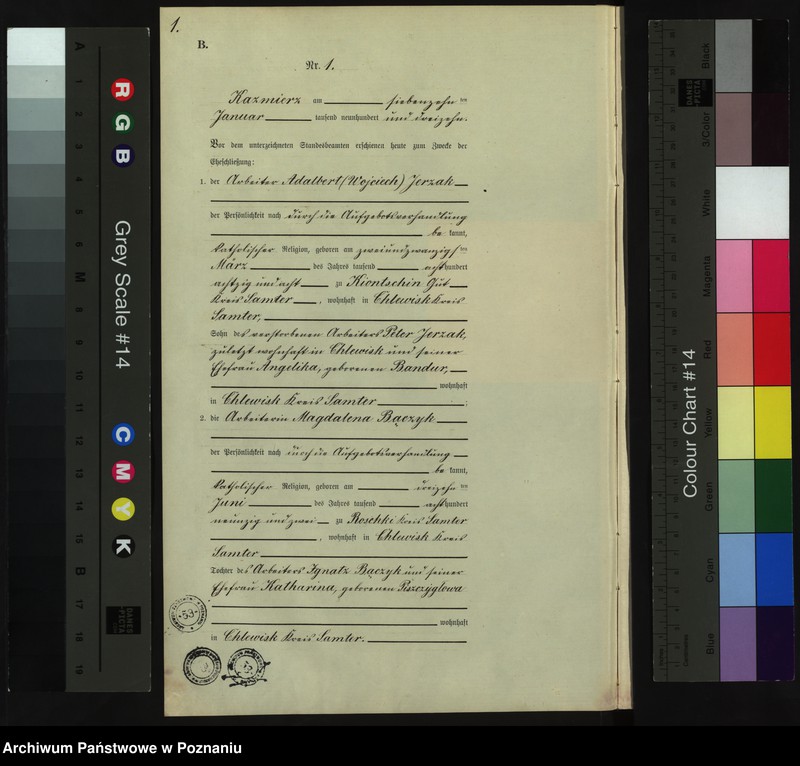 1.
B.
Nr. 1.
Kazmierz am siebenzehn ten
Januar tausend neunhundert und dreizehn.
Vor dem unterzeichneten Standesbeamten erschienen heute zum Zwecke der
Eheschließung:
1. der Arbeiter Adalbert (Wojciech) Jerzak
der Persönlichkeit nach durch die Aufgebotsverhandlung
be kannt,
katholischer Religion, geboren am zweiundzwanzigsten
März des Jahres tausend achthundert
achtzig und acht zu Kiontschin Gut
Kreis Samter, wohnhaft in Chlewisk Kreis
Samter,
Sohn des verstorbenen Arbeiters Peter Jerzak,
zuletzt wohnhaft in Chlewisk und seiner
Ehefrau Angelika, geborenen Bandur,
wohnhaft
in Chlewisk Kreis Samter.
2. die Arbeiterin Magdalena Bączyk
der Persönlichkeit nach durch die Aufgebotsverhandlung
be kannt,
katholischer Religion, geboren am dreizehn ten
Juni des Jahres tausend achthundert
neunzig und zwei zu Roschki Kreis Samter
, wohnhaft in Chlewisk Kreis
Samter
Tochter des Arbeiters Ignatz Bączyk und seiner
Ehefrau Katharina, geborenen Piszczyglowa
wohnhaft
in Chlewisk Kreis Samter.
53
A 1 2 3 4 5 6 M 8 9 10 11 12 13 14 15 B 17 18 19
R G B
Grey Scale #14
C M Y K
DANES PICTA
Colour Chart #14
Black
3/Color
White
Magenta
Red
Yellow
Green
Cyan
Blue
DANES PICTA
Archiwum Państwowe w Poznaniu